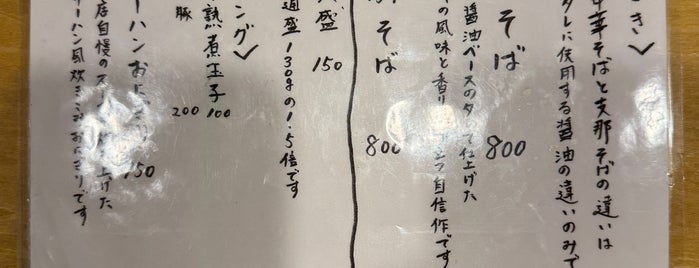 き〉
中華そばと支那そばの違いは
タレに使用する醤油の違いのみで
そば 800
醤油ベースのタ て仕上げた
の風味と香り 自信作です
そば 800
盛 150
通盛130gの1.5倍です
ング〉
熟煮玉子 100
豚 200
ーハンおにぎり 150
店自慢のス 上げた
ーハン風炊きこみおにぎりです